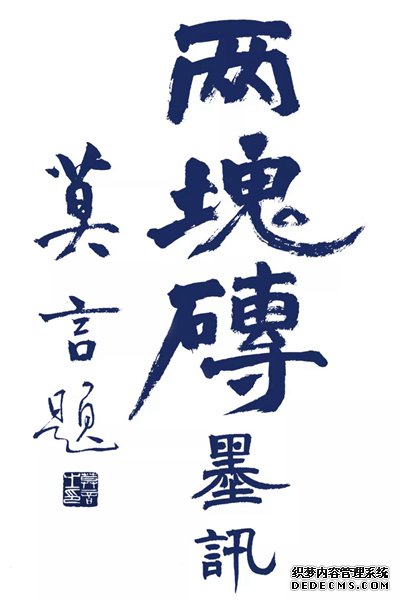 两塊磚墨訊
莫言題
织梦内容管理系统
DEDECMS.COM